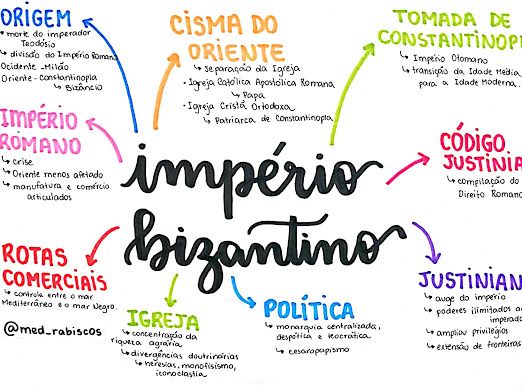 ORIGEM
↳ morte do imperador
Teodósio
↳ divisão do Império Romano
Ocidente - Milão
Oriente - Constantinopla
↳ Bizâncio
CISMA DO
ORIENTE
↳ separação da Igreja
· Igreja Católica Apostólica Romana
↳ Papa
· Igreja Cristã Ortodoxa
↳ Patriarca de Constantinopla
TOMADA DE
CONSTANTINOPL
↳ Império Otomano
↳ transição da Idade Média
para a Idade Moderna.
IMPÉRIO
ROMANO
↳ crise
↳ Oriente menos afetado
↳ manufatura e comércio
articulados
império
bizantino
CÓDIGO
JUSTINIA
↳ compilação do
Direito Romano
ROTAS
COMERCIAIS
↳ controle entre o mar
Mediterrâneo e o mar Negro.
@med_rabiscos
IGREJA
↳ concentração da
riqueza agrária
↳ divergências doutrinárias
↳ heresias, monofisismo,
iconoclastia
POLÍTICA
↳ monarquia centralizada,
despótica e teocrática
↳ cesaropapismo
JUSTINIAN
↳ auge do império
↳ poderes ilimitados ao
imperado
↳ ampliou privilégios
↳ extensão de fronteiras